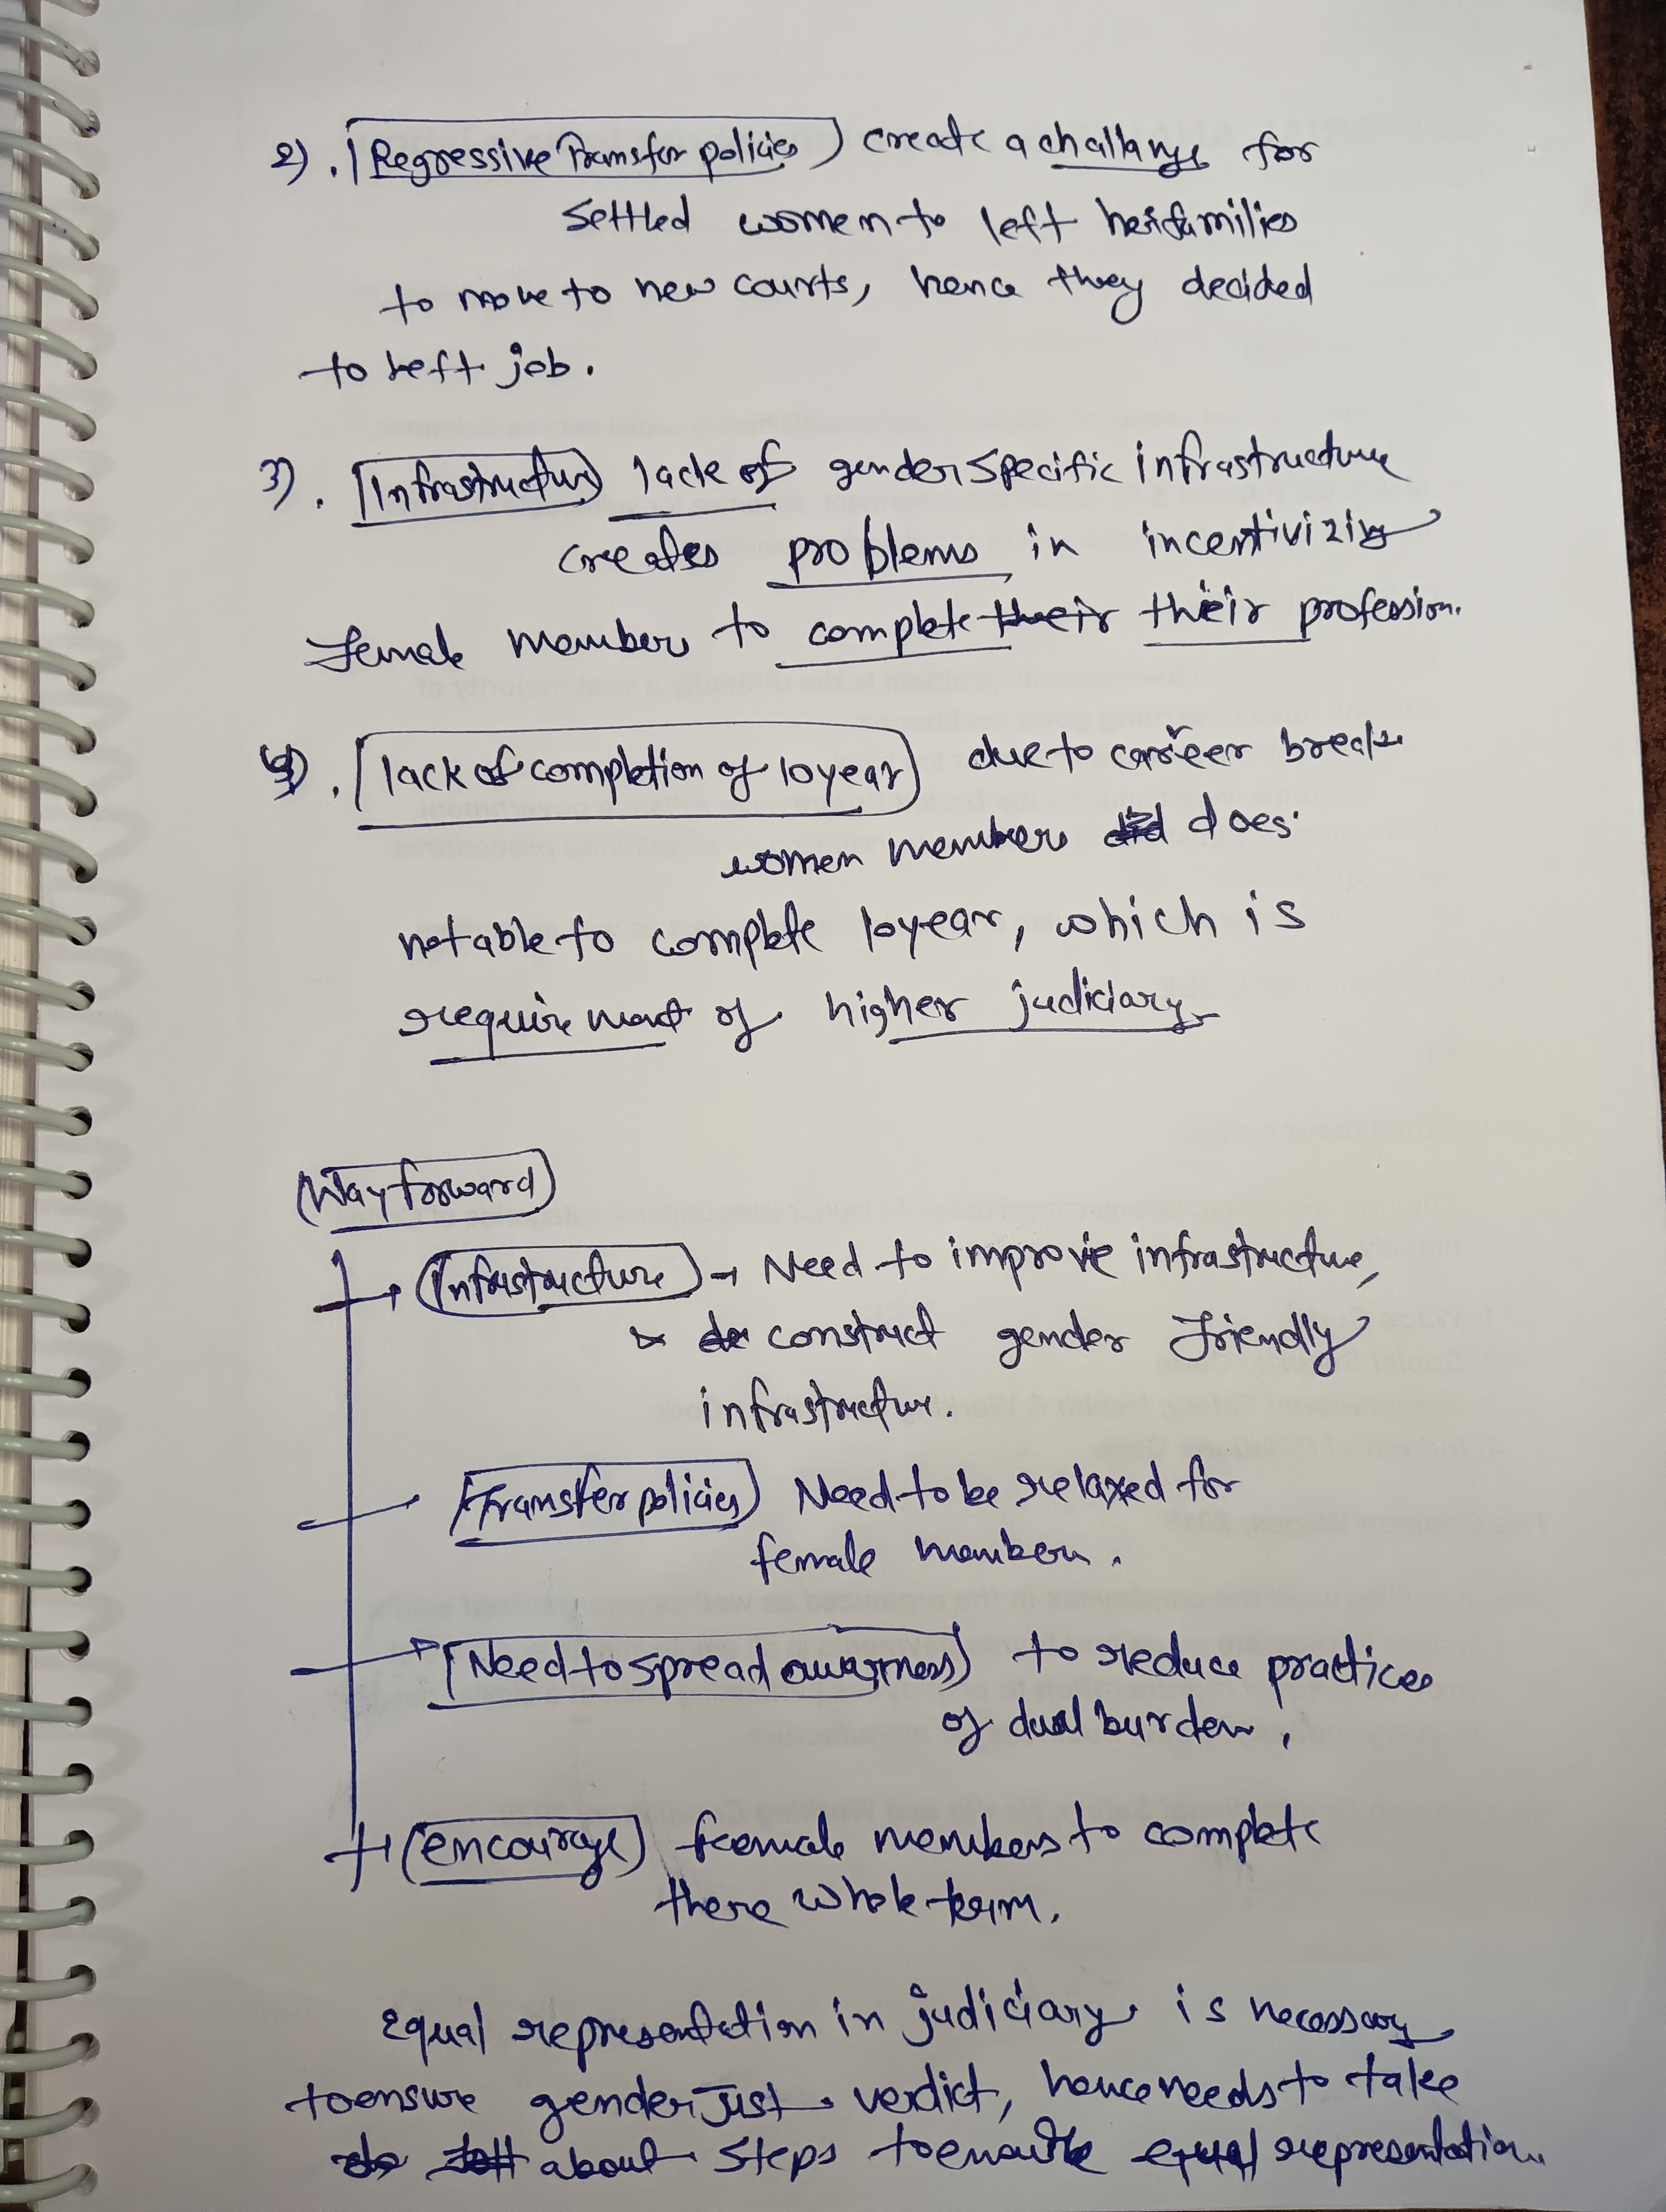 2). Regressive Transfer policies create a challange for
settled women to left her families
to move to new courts, hence they decided
to left job.
3). Infrastructure lack of gender specific infrastructure
creates problems in incentivizing
female members to complete their their profession.
4). lack of completion of 10 year due to career break
women members did does
not able to complete 10 year, which is
requirement of higher judiciary
Way forward
→ Infrastructure → Need to improve infrastructure,
& construct gender friendly
infrastructure.
Transfer policies Need to be relaxed for
female members.
→ Need to spread awarness to reduce practices
of dual burden.
→ encourage female members to complete
there whole term.
Equal representation in judiciary is necessary
to ensure gender just verdict, hence needs to take
about steps to ensure equal representation.